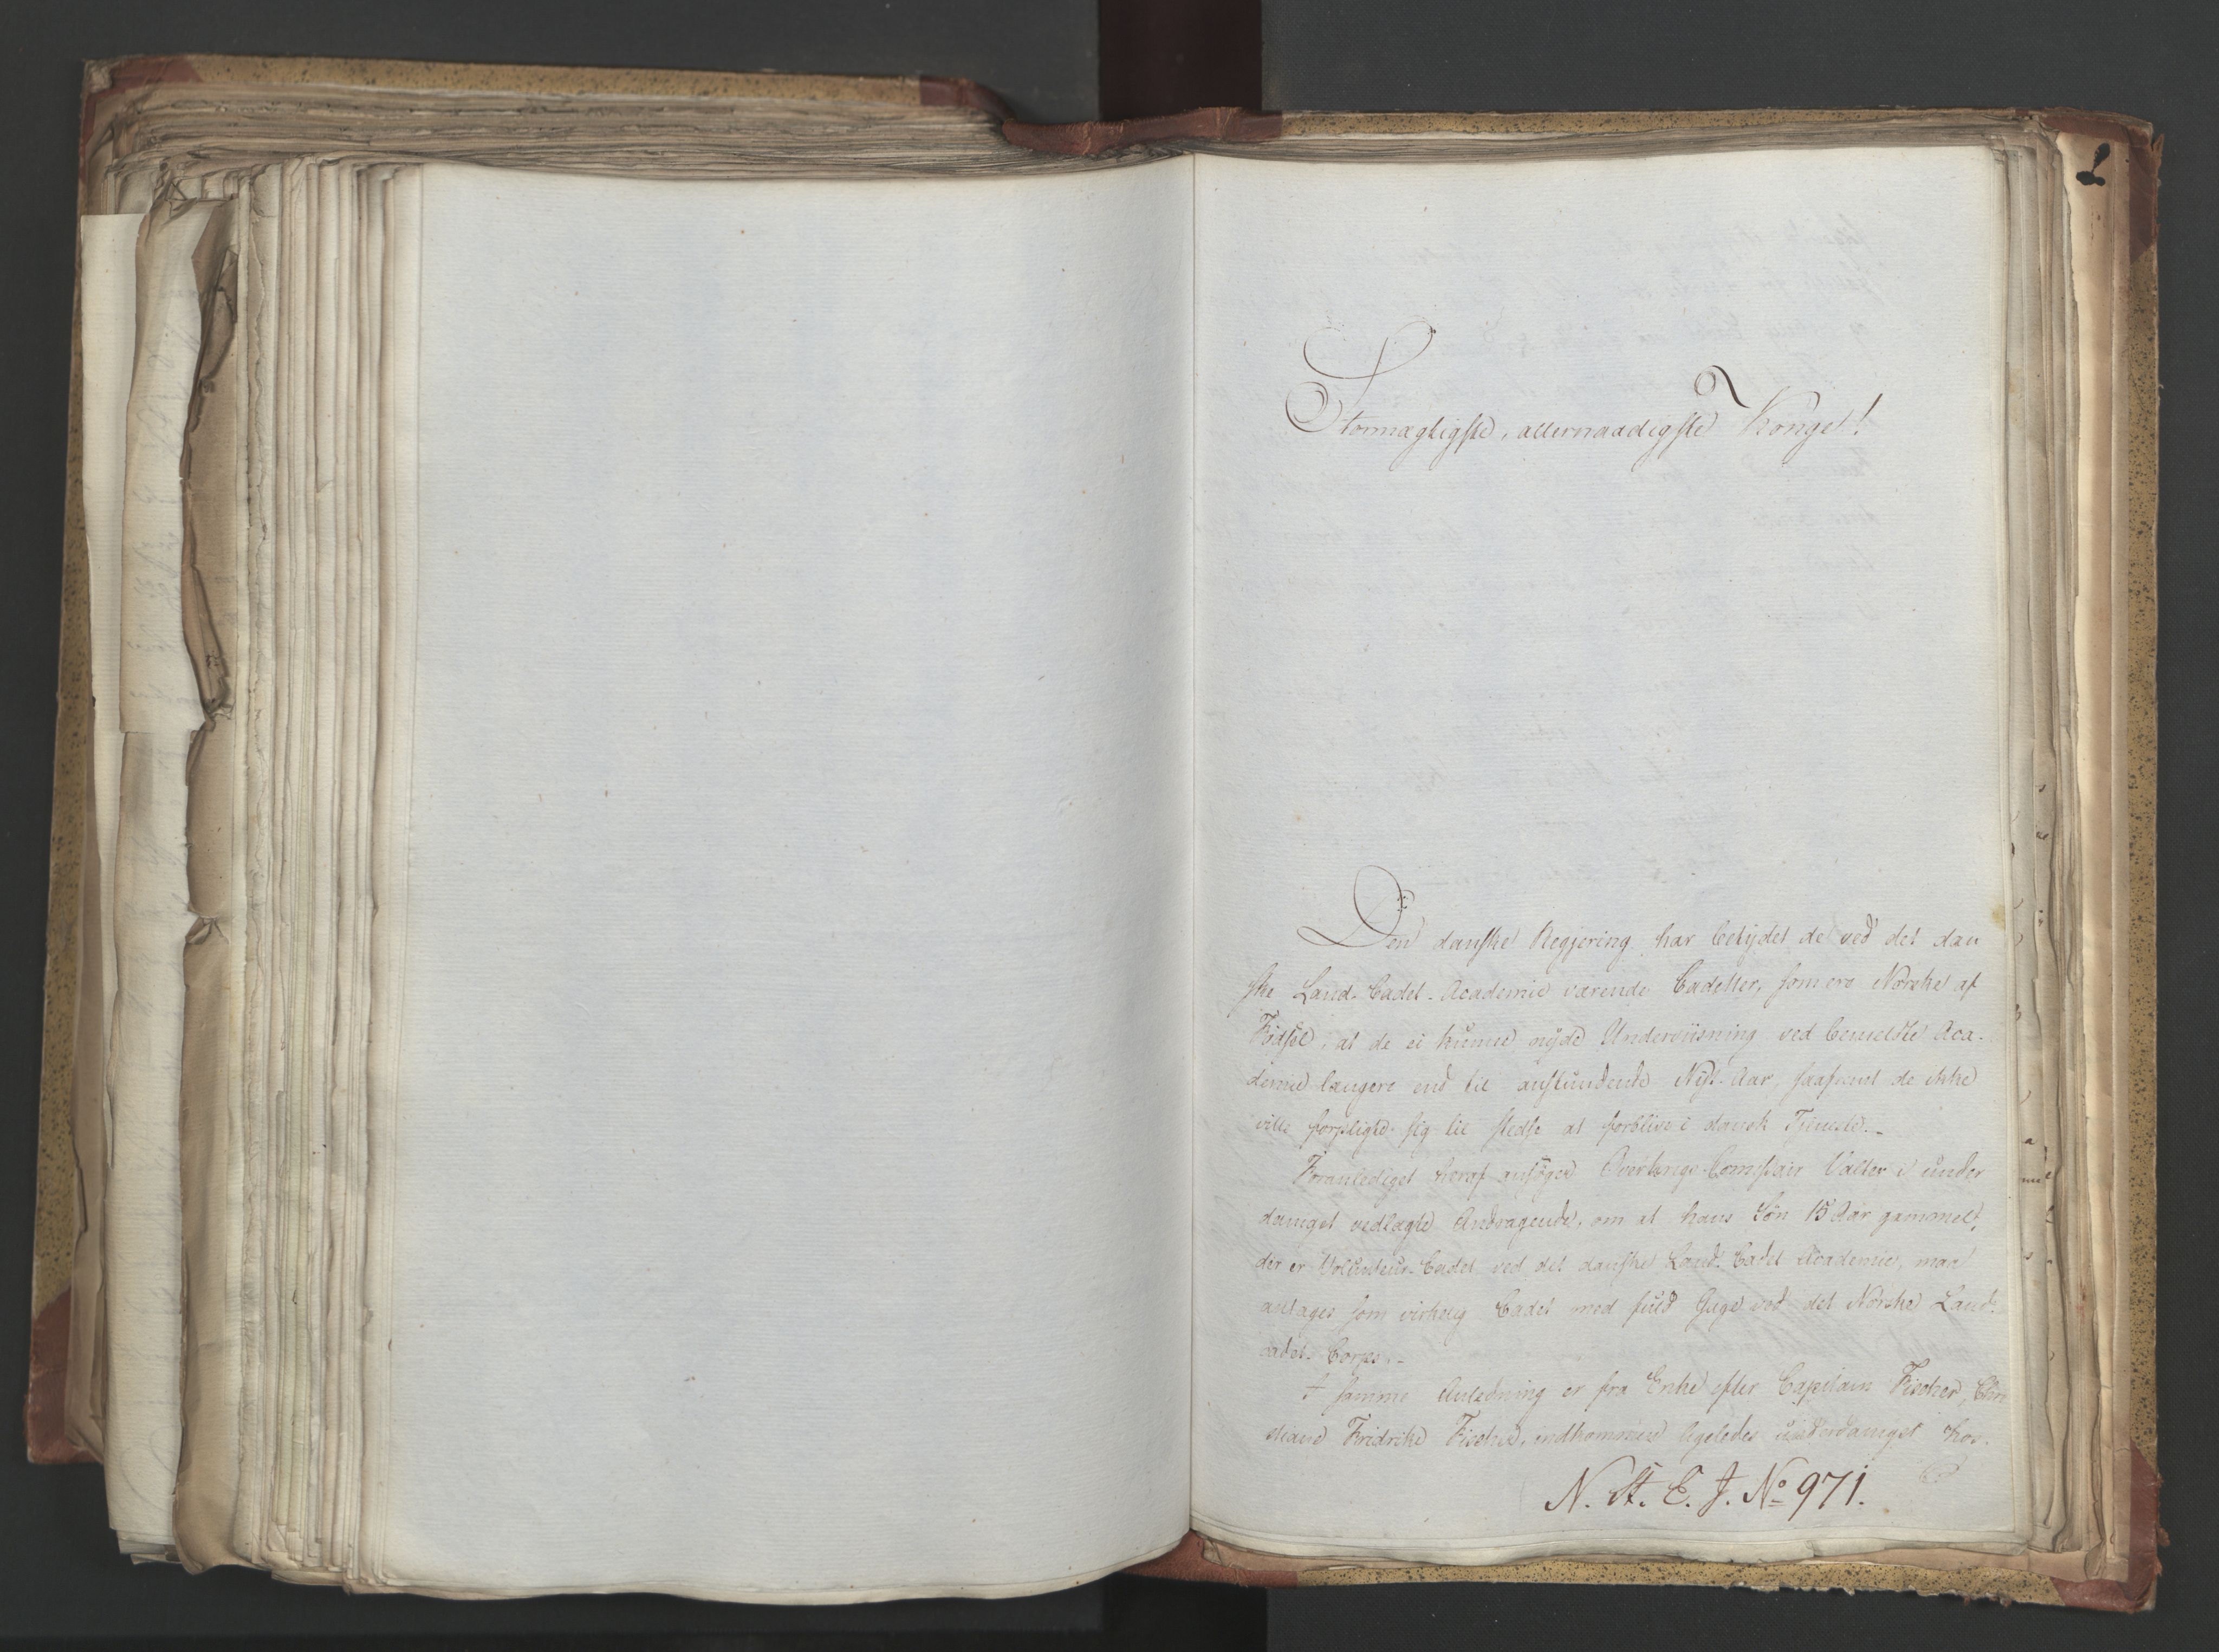 Stormægtigste, allernaadigste Konge!
Den danske Regjering har betydet de ved det dan
ske Land-Cadet-Academie værende Cadetter, som ere Norske af
Fødsel, at de ei kunne nyde Underviisning ved bemeldte Aca-
demie længere end til anstundende Nyt-Aar, saafremt de ikke
ville forpligte sig til stedse at forblive i dansk Tieneste.-
Foranlediget heraf ansøger Overkrigs-Commissair Valler i under
danigst vedlagte Andragende, om at hans Søn 15 Aar gammel,
der er Volunteur-Cadet ved det danske Land-Cadet Academie, maa
antages som virkelig Cadet med fuld Gage ved det Norske Land-
cadet-Corps.-
I samme Anledning er fra Enke efter Capitain Fischer, Chri
stiane Fridrike Fischer, indkommen ligeledes underdanigst hos-
N. St. E. J. No 971.